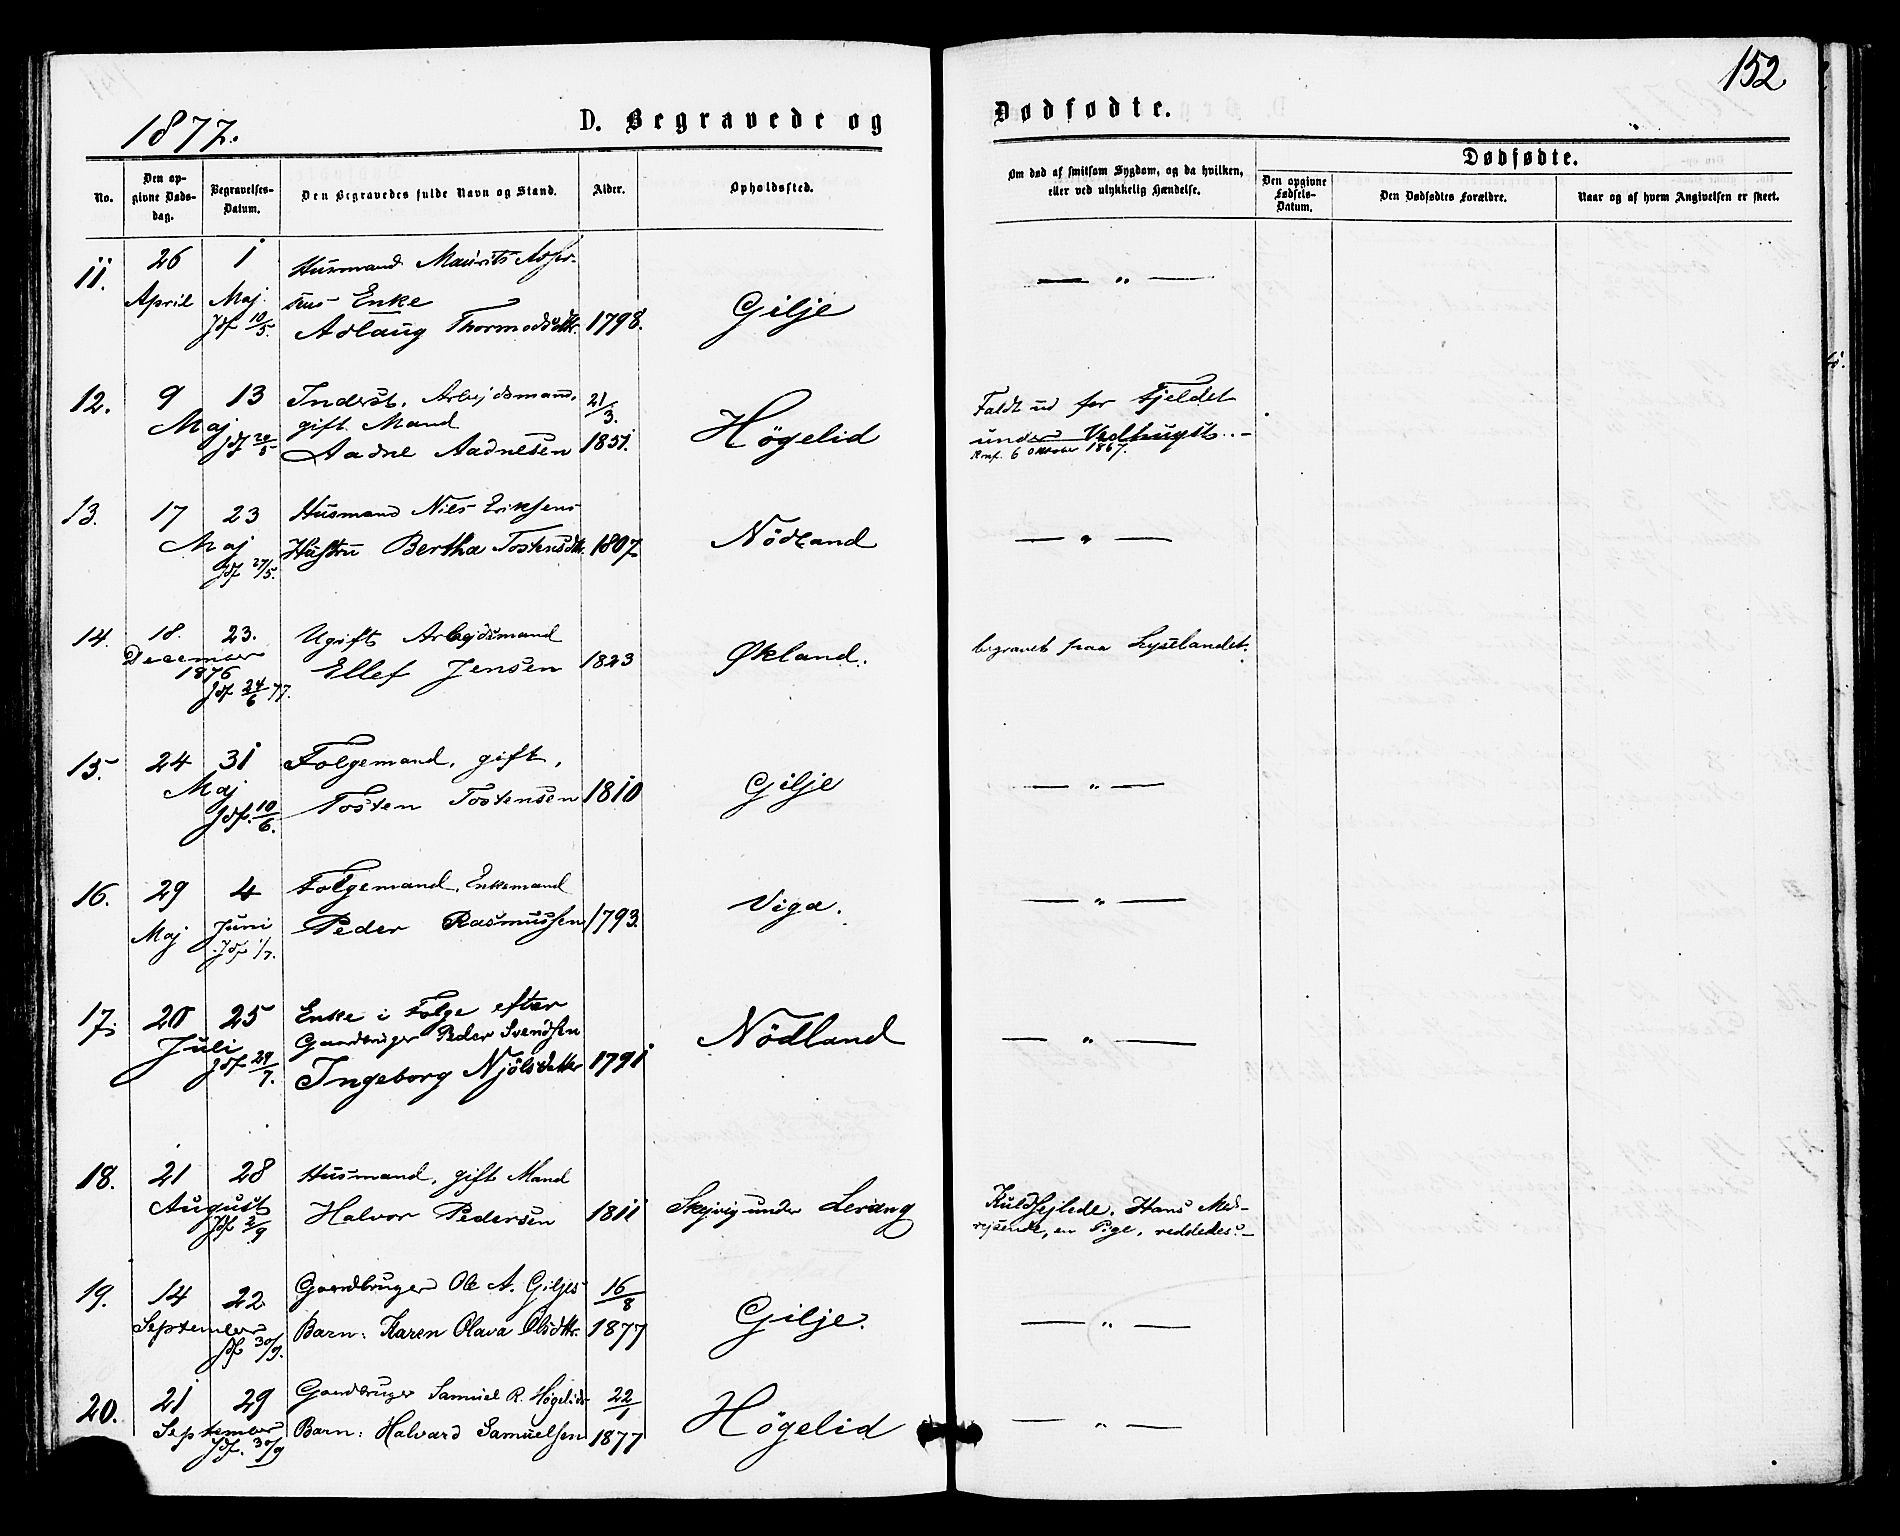 152
1877.
D. Begravede og
Dødfødte.
No.
Den op-
givne Døds-
dag.
Begravelses-
Datum.
Den Begravedes fulde Navn og Stand.
Alder.
Opholdssted.
Om død af smitsom Sygdom, og da hvilken,
eller ved ulykkelig Hændelse.
Dødfødte.
Den opgivne
Fødsels-
Datum.
Den Dødfødtes Forældre.
Naar og af hvem Angivelsen er skeet.
11.
26
April
1
Maj
Jdf 10/5.
Husmand Maurits
Enke
Adlaug Thormodsdtr.
1798.
Gilje
— " —
12.
9
13
Maj
Jdf 20/5
Inderst. Arbejdsmand,
gift Mand
Aadne Aadnesen
21/3.
1851.
Høgelid
Faldt ud for Fjeldet
under Vedhugst. –
Konf. 6 Oktober 1867.
13.
17
23
Maj
Jdf 27/5.
Husmand Niels Eriksens
Hustru Bertha Tostensdtr.
1807
Nödland
— " —
14.
18.
23.
December
1876
Jdf 24/6 77.
Ugift Arbejdsmand
Ellef Jensen
1823
Økland.
begravet paa Lyselandet.
15.
24
31
Maj
Jdf. 10/6.
Folgemand, gift,
Tosten Tostensen
1810
Gilje
— " —
16.
29
Maj
4
Juni
Jdf 1/7.
Folgemand, Enkemand
Peder Rasmussen
1793.
Viga.
— " —
17.
20
25
Juli
Jdf 29/7.
Enke i Folge efter
Gaardbruger Peder Svendsen
Ingeborg Njölsdatter
1791
Nödland
— " —
18.
21
28
August
Jdf 2/9
Husmand, gift Mand
Halvor Pedersen
1811
Skejvig under Lerang
Kuldsejlede. Hans Med-
rejsende, en Pige, reddedes. –
19.
14
22
September
Jdf 30/9.
Gaardbruger Ole A. Giljes
Barn: Karen Olava Olsdtr.
16/8
1877
Gilje.
— " —
20.
21
29
September
Jdf. 30/9
Gaardbruger Samuel R. Høgelids
Barn: Halvard Samuelsen
22/1
1877
Høgelid
— " —